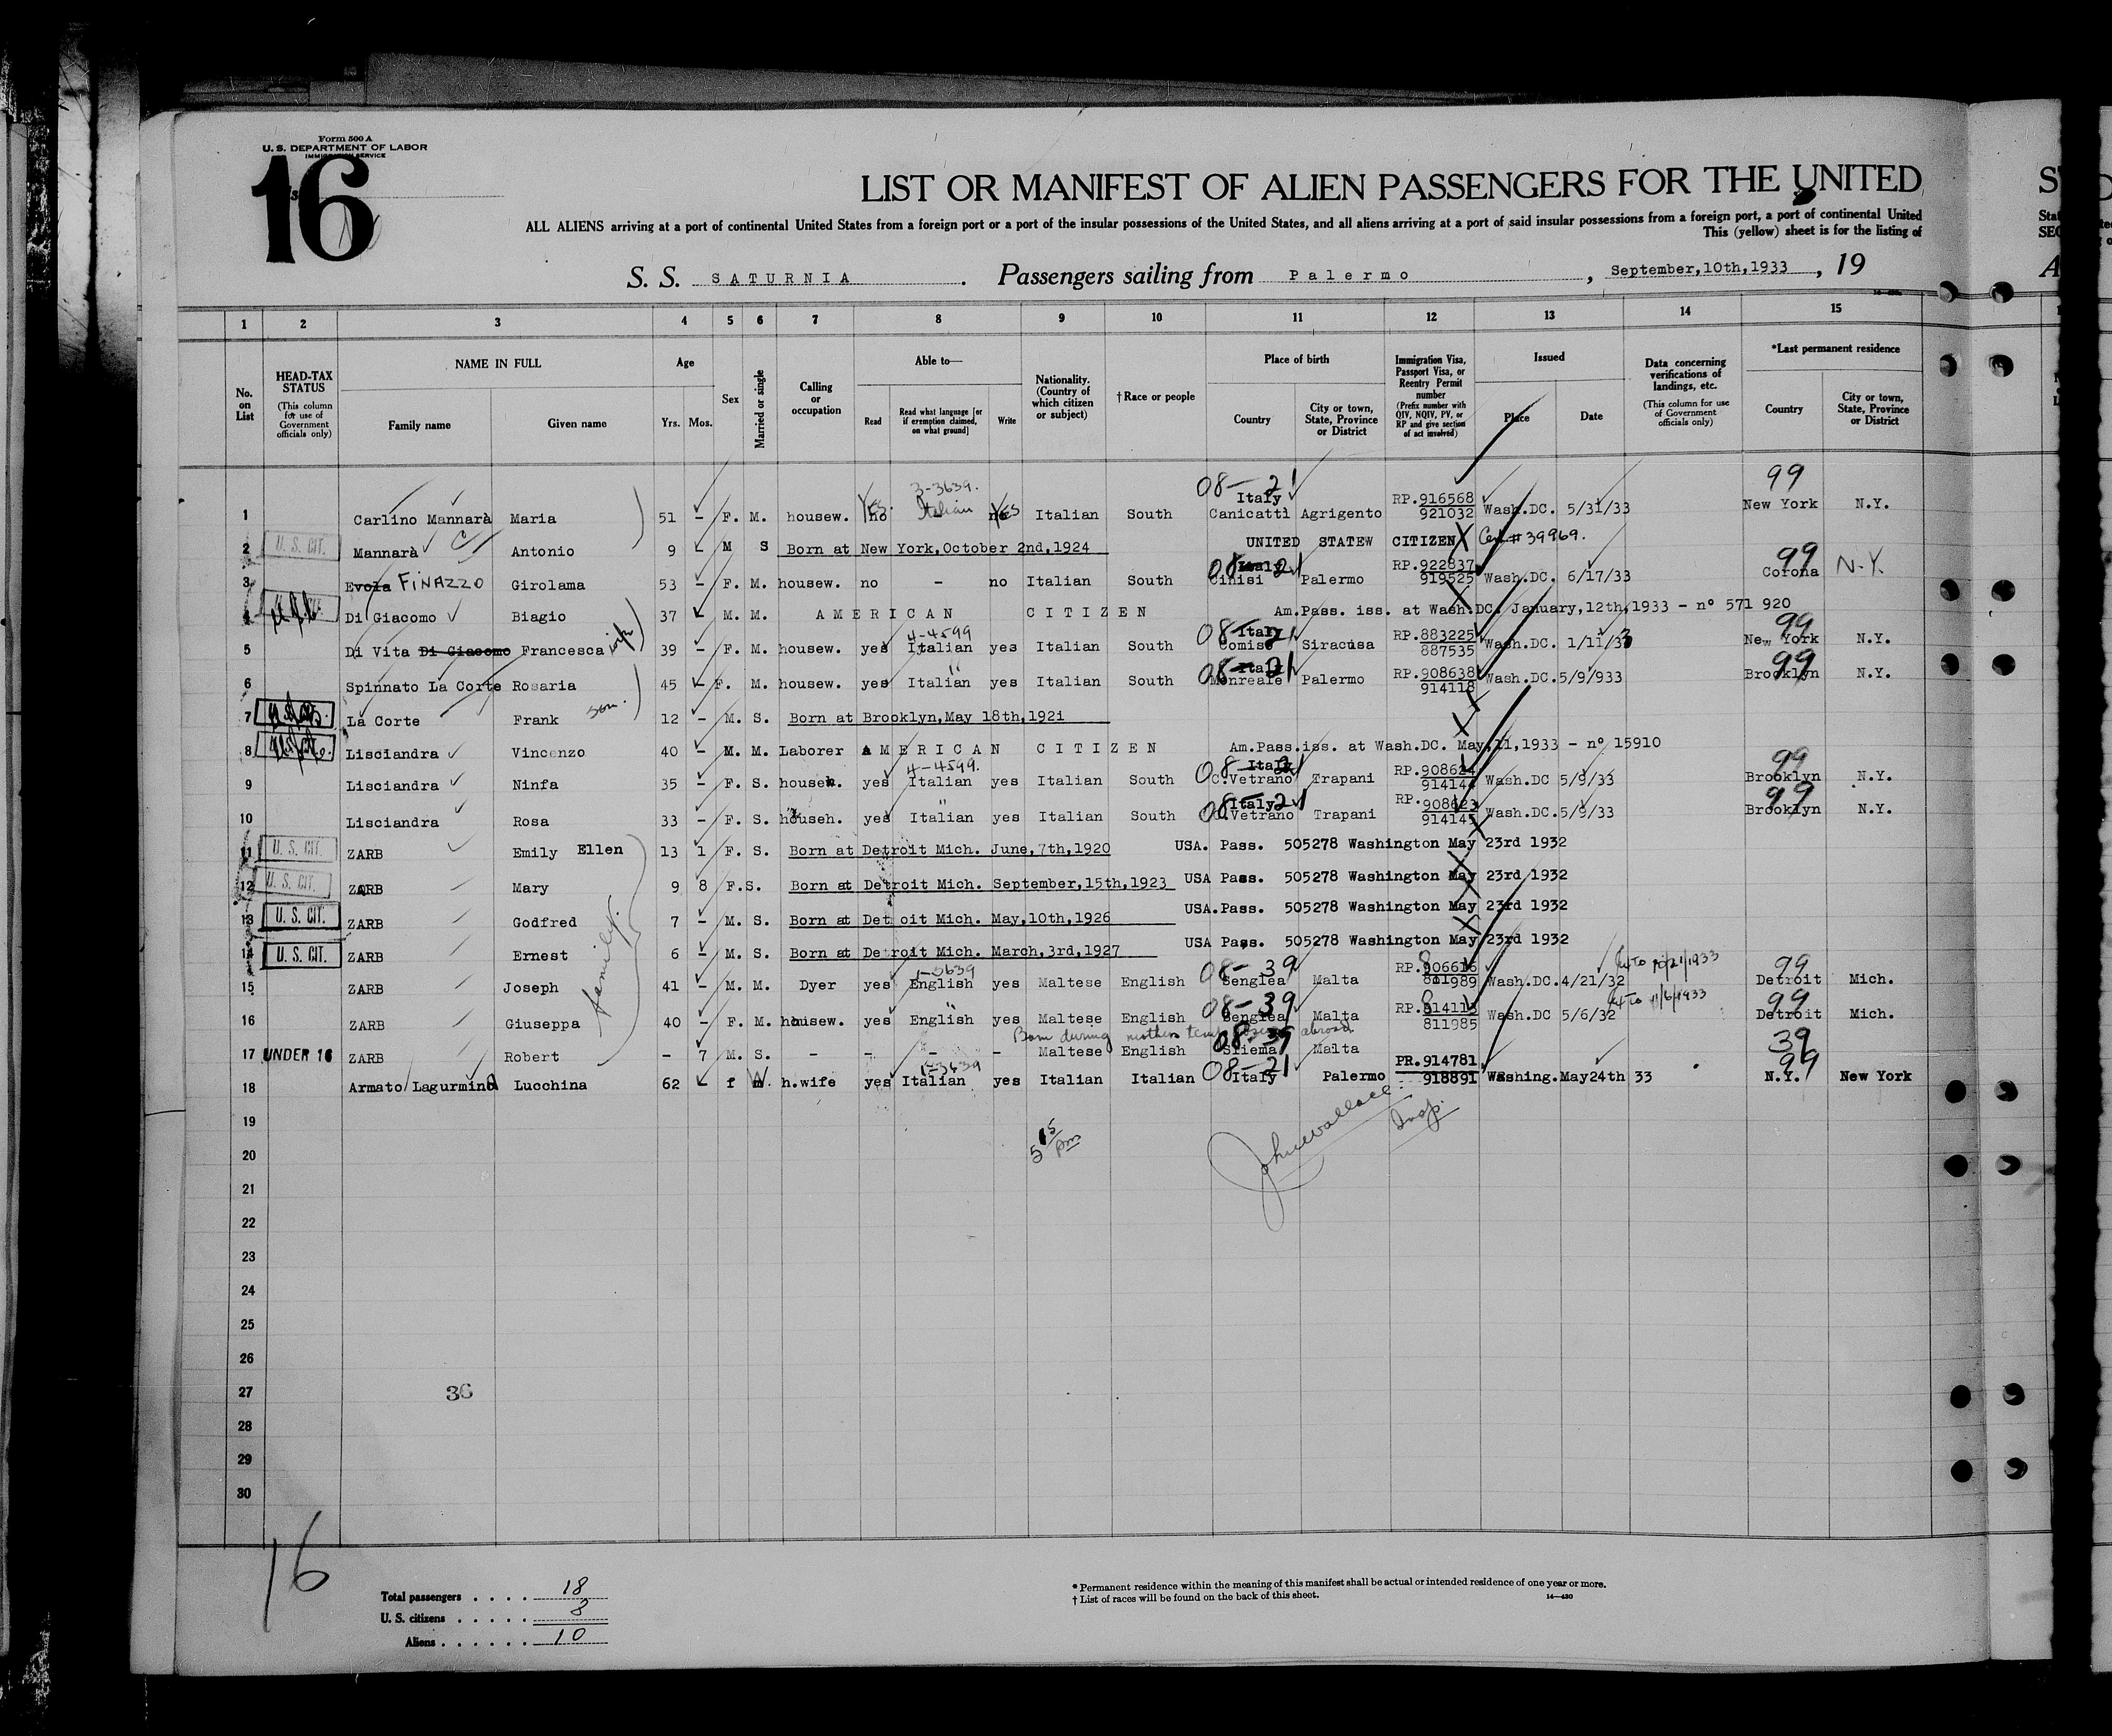 Form 500 A
U. S. DEPARTMENT OF LABOR
IMMIGRATION SERVICE
16
LIST OR MANIFEST OF ALIEN PASSENGERS FOR THE UNITED
ALL ALIENS arriving at a port of continental United States from a foreign port or a port of the insular possessions of the United States, and all aliens arriving at a port of said insular possessions from a foreign port, a port of continental United
This (yellow) sheet is for the listing of
S. S. SATURNIA. Passengers sailing from Palermo, September,10th,1933, 19
1 2 3 4 5 6 7 8 9 10 11 12 13 14 15
No. on List
HEAD-TAX STATUS (This column for use of Government officials only)
NAME IN FULL Family name Given name
Age Yrs. Mos.
Sex
Married or single
Calling or occupation
Able to— Read Read what language [or if exemption claimed, on what ground] Write
Nationality. (Country of which citizen or subject)
†Race or people
Place of birth Country City or town, State, Province or District
Immigration Visa, Passport Visa, or Reentry Permit number (Prefix number with QIV, NQIV, PV, or RP and give section of act involved)
Issued Place Date
Data concerning verifications of landings, etc. (This column for use of Government officials only)
*Last permanent residence Country City or town, State, Province or District
3-3639. 08-21 99
1 Carlino Mannarà Maria 51 - F. M. housew. no YES. - Italian no YES Italian South Italy Canicattì Agrigento RP.916568 921032 Wash.DC. 5/31/33 New York N.Y.
2 U. S. CIT. Mannarà Antonio 9 - M S Born at New York,October 2nd,1924 UNITED STATEW CITIZEN Cert # 39969.
3 Evola FINAZZO Girolama 53 - F. M. housew. no - no Italian South 08-21 Italy Cinisi Palermo RP.922837 919525 Wash.DC. 6/17/33 99 Corona N.Y.
4 Di Giacomo Biagio 37 - M. M. AMERICAN CITIZEN Am.Pass. iss. at Wash.DC. January,12th,1933 - n° 571 920
5 Di Vita Di Giacomo Francesca wife 39 - F. M. housew. yes 4-4599 Italian yes Italian South 08-21 Italy Comiso Siracusa RP.883225 887535 Wash.DC. 1/11/33 99 New York N.Y.
6 Spinnato La Corte Rosaria 45 - F. M. housew. yes Italian yes Italian South 08-21 Italy Monreale Palermo RP.908638 914118 Wash.DC.5/9/933 99 Brooklyn N.Y.
7 La Corte Frank son. 12 - M. S. Born at Brooklyn,May 18th,1921
8 Lisciandra Vincenzo 40 - M. M. Laborer AMERICAN CITIZEN Am.Pass.iss. at Wash.DC. May,11,1933 - n° 15910
9 Lisciandra Ninfa 35 - F. S. househ. yes 4-4599. Italian yes Italian South 08-21 Italy C.Vetrano Trapani RP.908624 914144 Wash.DC 5/9/33 99 Brooklyn N.Y.
10 Lisciandra Rosa 33 - F. S. househ. yes Italian yes Italian South 08-21 Italy C.Vetrano Trapani RP.908623 914145 Wash.DC.5/9/33 99 Brooklyn N.Y.
11 U. S. CIT. ZARB Emily Ellen 13 1 F. S. Born at Detroit Mich. June,7th,1920 USA. Pass. 505278 Washington May 23rd 1932
12 U. S. CIT. ZARB Mary 9 8 F.S. Born at Detroit Mich. September,15th,1923 USA Pass. 505278 Washington May 23rd 1932
13 U. S. CIT. ZARB Godfred 7 - M. S. Born at Detroit Mich. May,10th,1926 USA.Pass. 505278 Washington May 23rd 1932
14 U. S. CIT. ZARB Ernest 6 - M. S. Born at Detroit Mich. March,3rd,1927 USA Pass. 505278 Washington May 23rd 1932
family.
15 ZARB Joseph 41 - M. M. Dyer yes 1-3639 English yes Maltese English 08-39 Senglea Malta RP.806616 811989 Wash.DC.4/21/32 10/21/1933 99 Detroit Mich.
16 ZARB Giuseppa 40 - F. M. housew. yes English yes Maltese English 08-39 Senglea Malta RP.814113 811985 Wash.DC 5/6/32 11/6/1933 99 Detroit Mich.
Born during mothers temp abroad
17 UNDER 16 ZARB Robert - 7 M. S. - - - - Maltese English 08-39 Sliema Malta 39
18 Armato Lagurmina Lucchina 62 - f W. h.wife yes 1-3639 Italian yes Italian Italian 08-21 Italy Palermo PR.914781 918891 Washing.May24th 33 99 N.Y. New York
19
5 15 pm
John Wallace Insp.
20
21
22
23
24
25
26
27 36
28
29
30
16
Total passengers . . . . 18
U. S. citizens . . . . . 8
Aliens . . . . . . 10
* Permanent residence within the meaning of this manifest shall be actual or intended residence of one year or more.
† List of races will be found on the back of this sheet. 14—430